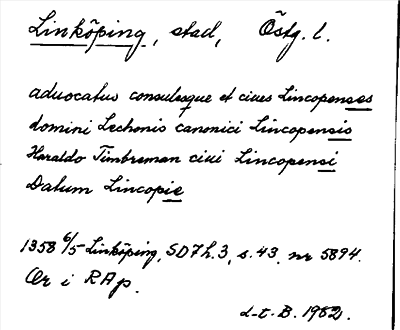 Linköping, stad, Östg. l.
aduocatus consulesque et ciues Lincopenses
domini Lechonis canonici Lincopensis
Haraldo Timbreman ciui Lincopensi
Datum Lincopie
1358 6/5 Linköping, SD 7 h. 3, s. 43, nr 5894.
Or i RAp.
L-t-B. 1982.